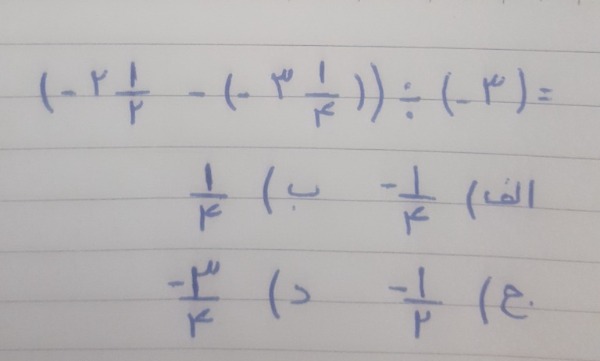 (-۲ ۱/۲ - (-۳ ۱/۴)) ÷ (-۳) =
الف) -۱/۴ ب) ۱/۴
ج) -۱/۲ د) -۳/۴